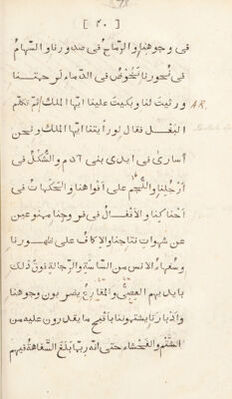 [ ٢٠ ]
فى وجوهنا والرماح فى صدورنا والسهام
فى نحورنا نخوض فى الدماء لو رحمتنا
ورثيت لنا وبكيت علينا ايها الملك ثم تكلم
البغل فقال لو رأيتنا ايها الملك ونحن
أسارى فى ايدى بنى آدم والشكل فى
أرجلنا واللجم على أفواهنا والحكمات فى
أحناكنا والأقفال فى فروجنا ممنوعين
عن شهوات نتاجنا والاكاف على ظهورنا
وسفهاء الانس من الساسة والرجالة فوق ذلك
بايديهم العصى والمقارع يضربون وجوهنا
وادبارنا يشتموننا باقبح ما يقدرون عليه من
الشتم والفحشاء حتى انه ربما بلغ السفاهة فيهم
AR.